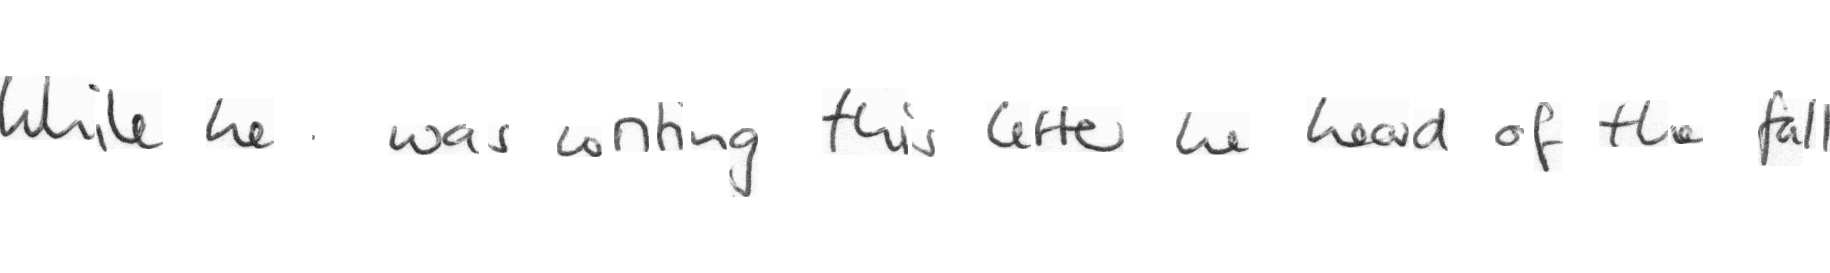 While he . was writing this letter he heard of the fall